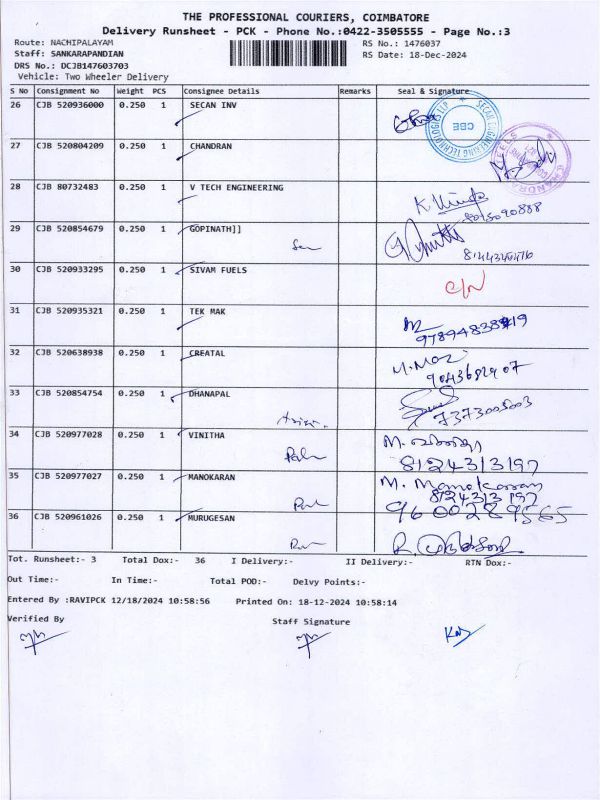 THE PROFESSIONAL COURIERS, COIMBATORE
Delivery Runsheet - PCK - Phone No.:0422-3505555 - Page No.:3
Route: NACHIPALAYAM RS No.: 1476037
Staff: SANKARAPANDIAN RS Date: 18-Dec-2024
DRS No.: DCJB147603703
Vehicle: Two Wheeler Delivery
S No Consignment No Weight PCS Consignee Details Remarks Seal & Signature
26 CJB 520936000 0.250 1 SECAN INV
CBE
27 CJB 520804209 0.250 1 CHANDRAN
28 CJB 80732483 0.250 1 V TECH ENGINEERING
29 CJB 520854679 0.250 1 GOPINATH]]
30 CJB 520933295 0.250 1 SIVAM FUELS
31 CJB 520935321 0.250 1 TEK MAK
32 CJB 520638938 0.250 1 CREATAL
33 CJB 520854754 0.250 1 DHANAPAL
7373005003
34 CJB 520977028 0.250 1 VINITHA
8124313197
35 CJB 520977027 0.250 1 MANOKARAN M. Manokaran
8124313197
9600289565
36 CJB 520961026 0.250 1 MURUGESAN
Tot. Runsheet:- 3 Total Dox:- 36 I Delivery:- II Delivery:- RTN Dox:-
Out Time:- In Time:- Total POD:- Delvy Points:-
Entered By :RAVIPCK 12/18/2024 10:58:56 Printed On: 18-12-2024 10:58:14
Verified By Staff Signature